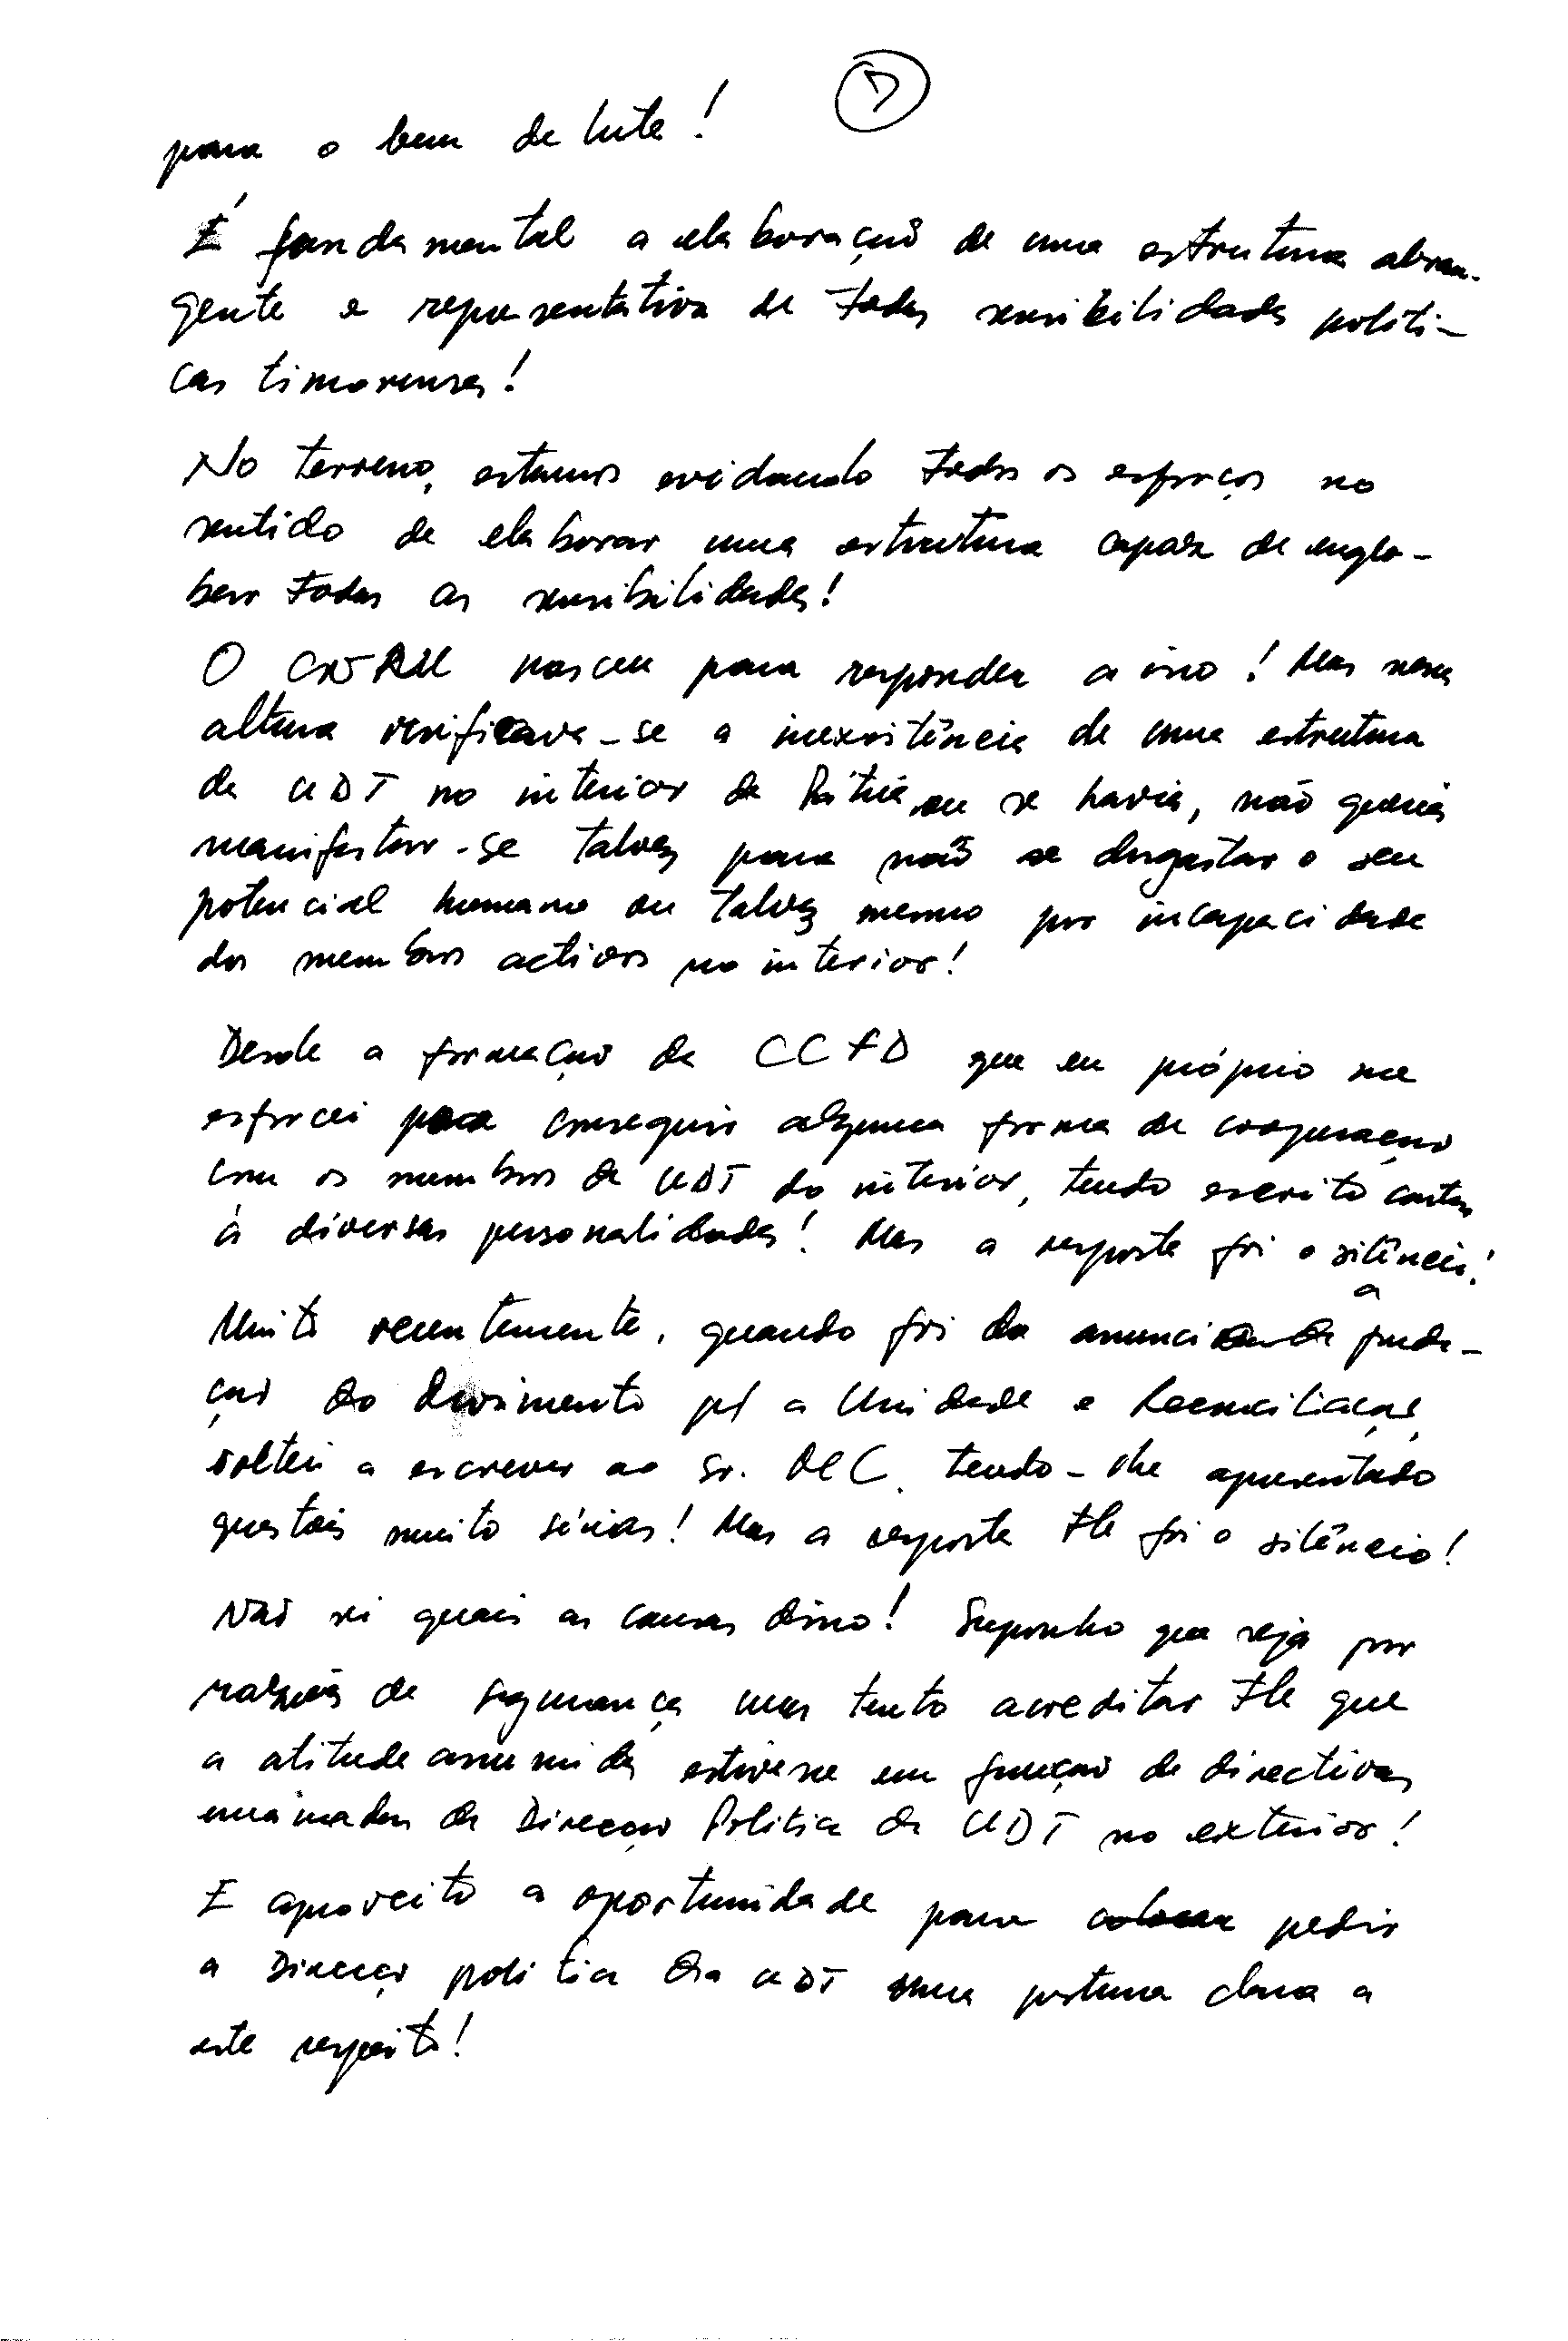 7
para o bem da luta!
É fundamental a elaboração de uma estrutura abran-
gente e representativa de todas sensibilidades políti-
cas timorenses!
No terreno, estamos evidando todos os esforços no
sentido de elaborar uma estrutura capaz de englo-
bar todas as sensibilidades!
O CNRM nasceu para responder a isso! Mas nessa
altura verificava-se a inexistência de uma estrutura
da UDT no interior da Pátria ou se havia, não queria
manifestar-se talvez para não se desgastar o seu
potencial humano ou talvez mesmo por incapacidade
dos membros activos no interior!
Desde a formação da CCFD que eu próprio me
esforcei para conseguir alguma forma de cooperação
com os membros da UDT do interior, tendo escrito cartas
à diversas personalidades! Mas a resposta foi o silêncio!
Muito recentemente, quando foi da anunciada a funda-
ção do Movimento p/ a Unidade e Reconciliação,
voltei a escrever ao Sr. tendo-lhe apresentado
questões muito sérias! Mas a resposta foi o silêncio!
Não sei quais as causas disso! Suponho que seja por
razões de segurança mas tento acreditar que
a atitude assumida estivesse em função de directivas
emanadas da Direcção Política da UDT no exterior!
E aproveito a oportunidade para colocar pedir
a Direcção política da UDT uma postura clara a
este respeito!